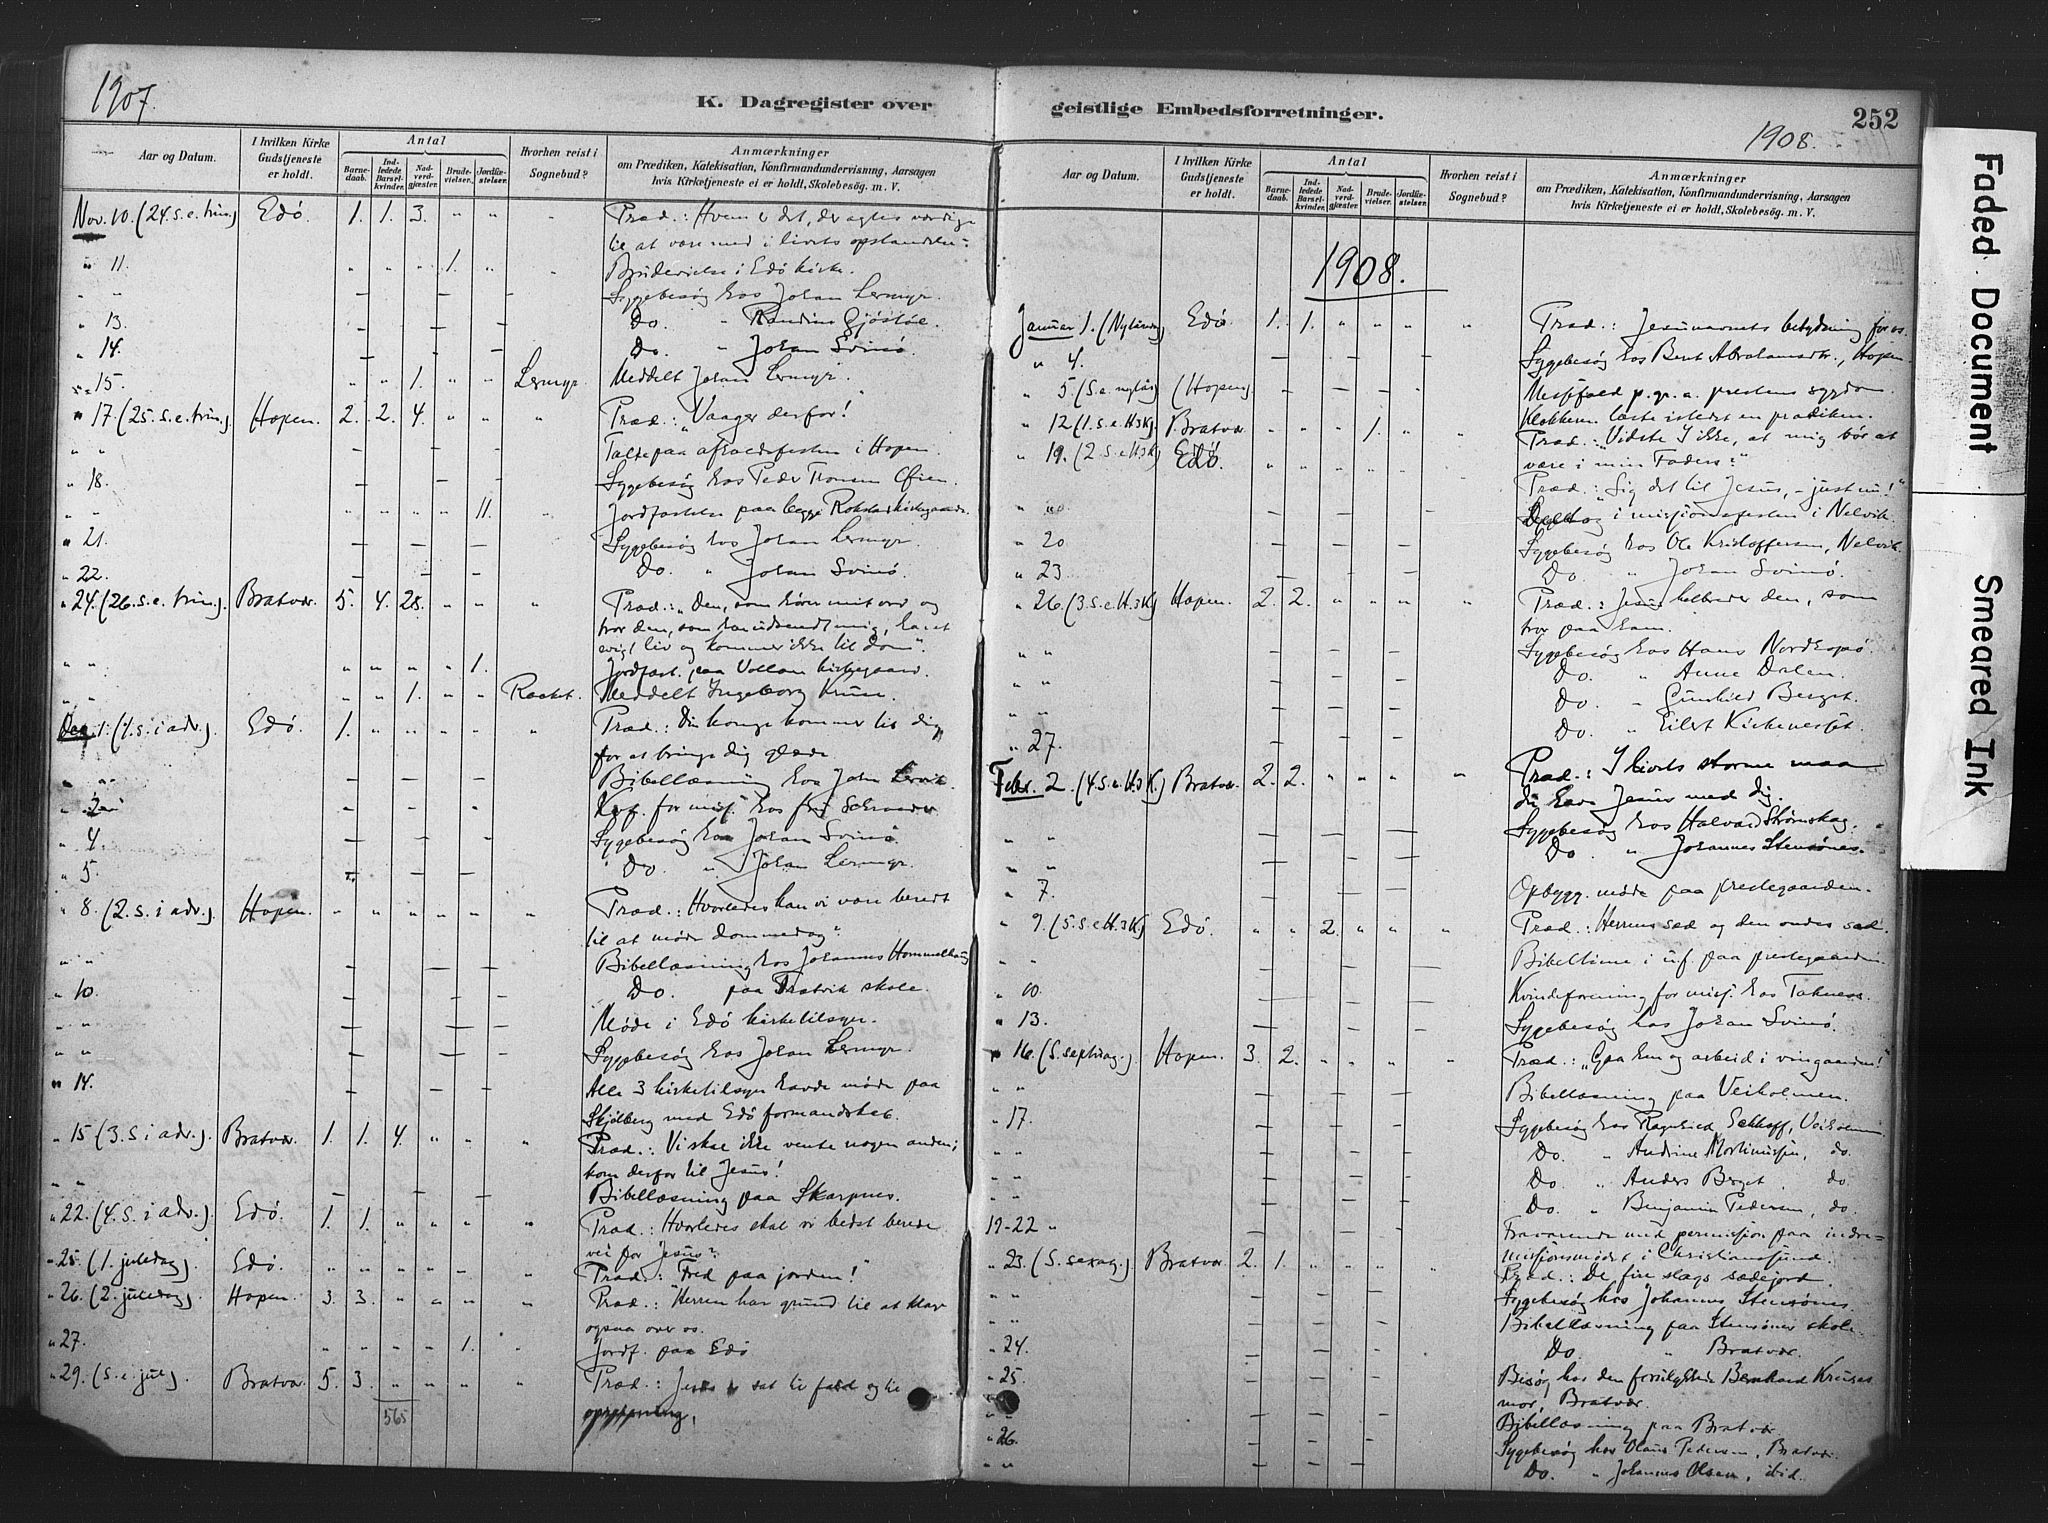 1907.
K. Dagregister over
Aar og Datum.
I hvilken Kirke Gudstjeneste er holdt.
Antal
Barnedaab.
Indledede Barselkvinder.
Nadverdgjæster.
Brudevielser.
Jordfæstelser.
Hvorhen reist i Sognebud?
Anmærkninger
om Prædiken, Katekisation, Konfirmandundervisning, Aarsagen
hvis Kirketjeneste ei er holdt, Skolebesøg. m. V.
Nov. 10. (24. s. e. trin.) Edö. 1. 1. 3. " " " Præd.: Hvem er det, der agtes værdige
til at være med i livets opstandelse
" 11. " " " 1. " " Brudevielse i Edö kirke.
" " Sygebesög hos Johan Lermyr.
" 13. Do. "
" 14. Do. " Johan Svinö.
" 15. 1. " " Lermyr. Meddelt Johan Lermyr.
" 17 (25. s. e. trin.) Hopen. 2. 2. 4. " " " Præd.: "Vaager derfor!"
" " Talte paa afholdsfesten i Hopen.
" 18. Sygebesög hos Peder
" " " " " " 11. " Jordfæstelse paa begge
" 21. Sygebesög hos Johan Lermyr.
" 22. Do. " Johan Svinö.
" 24. (26. s. e. trin.) Bratvær. 5. 4. 28. " " " Præd.: "Den, som hörer mit ord og
tror den, som har udsendt mig, haver
evigt liv og kommer ikke til dom".
" " " " " " 1. Jordfæst. paa Vollan kirkegaard.
" " " " 1. " " Rocket. Meddelt Ingeborg
Dec. 1. (1. s. i adv.) Edö. 1. " " " " " Præd.: Din konge kommer til dig,
for at bringe dig glæde
" " Bibellæsning hos John Lervik.
" 2 for miss. hos
" 4. Sygebesög hos Johan Svinö
" 5. Do. " Johan Lermyr.
" 8. (2. s. i adv.) Hopen. " " " " " " Præd.: Hvorledes kan vi være beredt
til at möde dommedag?
" " Bibellæsning hos Johannes Hammelhaug
" 10. Do. paa skole.
" " Möde i Edö kirketilsyn.
" " Sygebesög hos Johan Lermyr.
" 14. Alle 3 kirketilsyn havde möde paa
Skjölberg med Edö formandskab.
" 15 (3. s. i adv.). Bratvær. 1. 1. 4. " " " Præd.: Vi skal ikke vente nogen anden;
kom derfor til Jesus!
" " Bibellæsning paa Skarpnes.
" 22. (4. s. i adv.). Edö. 1. 1. " " " " Præd.: Hvorledes skal vi bedst berede
vei for Jesus?
" 25. (1. juledag) Edö. " " " " " " Præd.: "Fred paa jorden!"
" 26. (2. juledag) Hopen. 3. 3. " " " " Præd.: Herren har grund til at klage
ogsaa over os.
" 27. " " " " 1. " Jordf. paa Edö
" 29. (s. e. jul). Bratvær. 5. 3. " " " " Præd.: Jesus er sat til fald og til
opreisning.
565
geistlige Embedsforretninger.
252
1908.
Aar og Datum.
I hvilken Kirke Gudstjeneste er holdt.
Antal
Barnedaab.
Indledede Barselkvinder.
Nadverdgjæster.
Brudevielser.
Jordfæstelser.
Hvorhen reist i Sognebud?
Anmærkninger
om Prædiken, Katekisation, Konfirmandundervisning, Aarsagen
hvis Kirketjeneste ei er holdt, Skolebesøg. m. V.
1908.
Januar 1. (Nytaarsdag) Edö. 1. 1. " " " " Præd.: Jesunavnets betydning for os.
" 4. Sygebesög hos Berit Abrahamsdtr., Hopen.
" 5 (S. e. nytaar) (Hopen) Messefald p. gr. a. prestens sygdom
Klokkeren læste istedet en prædiken.
" 12 (1. s. e. H3K). Bratvær " " " 1. " " Præd.: "Vidste I ikke, at mig bör at
være i min Faders?"
" 19. (2. s. e. H3K) Edö. " " " " " " Præd.: "Sig det til Jesus, – just nu!"
" " Deltog i missionsfesten i Nelvik.
" 20 Sygebesög hos Ole Kristoffersen, Nelvik.
" 23 Do. " Johan Svinö.
" 26. (3. s. e. H.3K) Hopen. 2. 2. " " " " Præd.: Jesus helbreder den, som
tror paa ham.
" " Sygebesög hos Hans
" " Do. " Anne Dalen.
" " Do. " Gunhild Berget.
" " Do. " Eilert
" 27.
Febr. 2. (4. s. e. H.3K.) Bratvær. 2. 2. " " " " Præd.: I livets storme maa
du have Jesus med dig.
" " Sygebesög hos Halvard Strömskag.
" " Do. " Johannes Stensönes.
" 7. Opbygg. möde paa prestegaarden.
" 9. (5. s. e. H.3K) Edö. " " 2. " " " Præd.: Herrens sæd og den ondes sæd.
" " Bibeltime i u.f. paa prestegaarden
" 10. Kvindeforening for miss. hos Taknes.
" 13. Sygebesög hos Johan Svinö.
" 16. (S. septuag.) Hopen. 3. 2. " " " " Præd.: "Gaa hen og arbeid i vingaarden!"
" " Bibellæsning paa Veiholmen.
" 17. Sygebesög hos Ragnhild Eckhoff, Veiholmen
" " Do. " Andrine do.
" " Do. " Anders Berget. do.
" " Do. " Benjamin Pedersen, do.
19-22 " Fraværende med permission paa indre-
missionsmödet i Christianssund.
" 23. (S. sexag.) Bratvær 2. 1. " " " " Præd.: De fire slags sædejord.
" " Sygebesög hos Johannes Stensönes.
" " Bibellæsning paa Stensönes skole.
" 24. Do. " Bratvær.
" 25. Besög hos den forulykkede Bernhard Kruses
mor, Bratvær.
" " Bibellæsning paa Bratvær.
" 26. Sygebesög hos Olaus Pedersen, Bratvær.
" " Do. " Johannes Olsen, ibid.
Faded Document
Smeared Ink